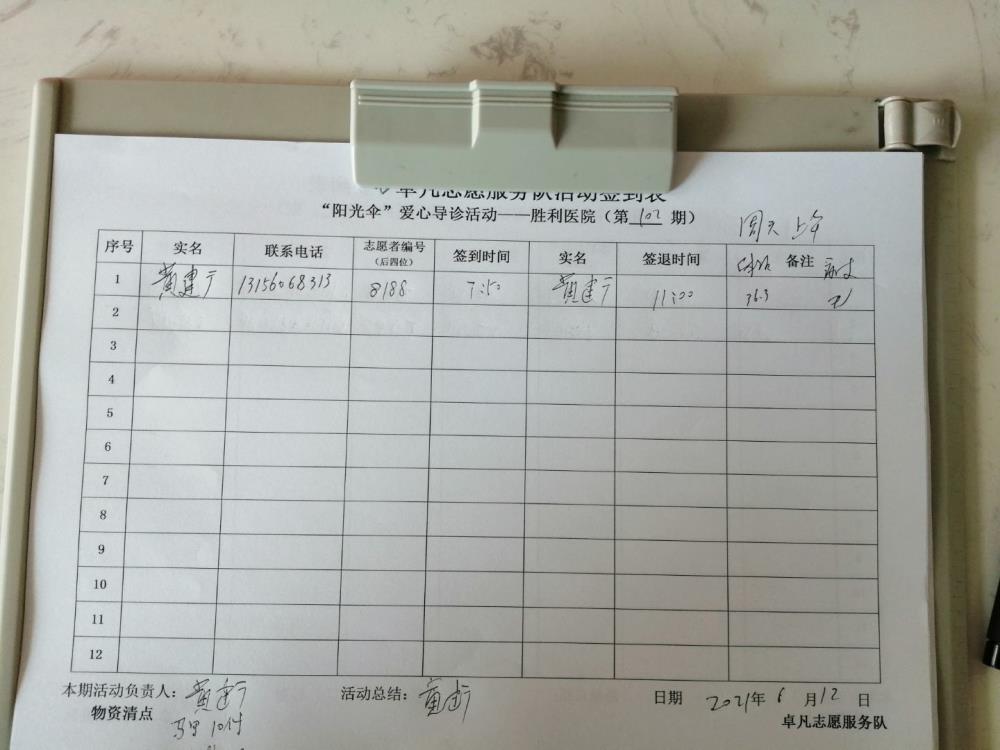 卓凡志愿服务队活动签到表
“阳光伞”爱心导诊活动——胜利医院（第 102 期）
周六 上午
序号 实名 联系电话 志愿者编号（后四位） 签到时间 实名 签退时间 备注
1 黄建宁 13156068313 8188 7:50 黄建宁 11:00 36.3 无
2
3
4
5
6
7
8
9
10
11
12
本期活动负责人：黄建宁 活动总结：黄建宁 日期 2021年 6 月 12 日
物资清点 卓凡志愿服务队
马甲 10件